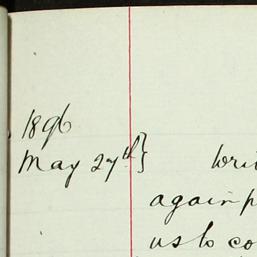 1896
May 27th}
again
us to co